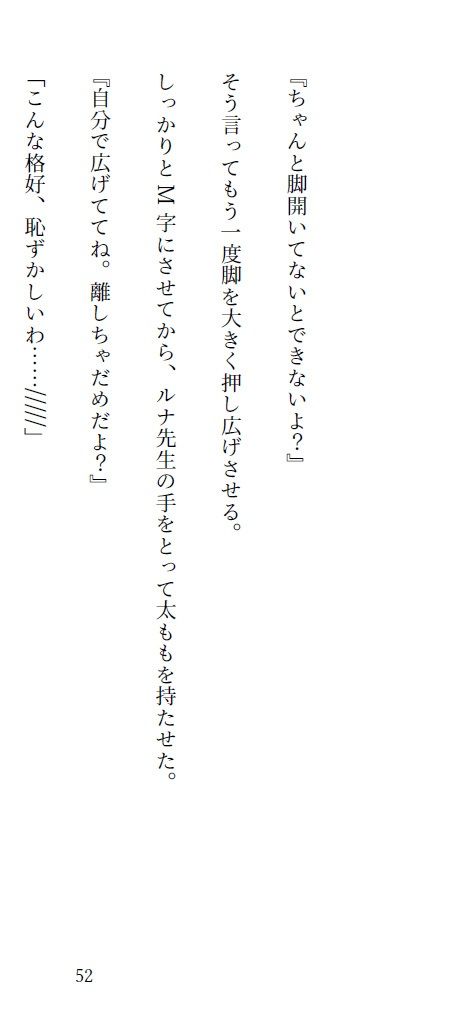 『ちゃんと脚開いてないとできないよ？』
そう言ってもう一度脚を大きく押し広げさせる。
しっかりとM字にさせてから、ルナ先生の手をとって太ももを持たせた。
『自分で広げててね。離しちゃだめだよ？』
「こんな格好、恥ずかしいわ……//////」
52